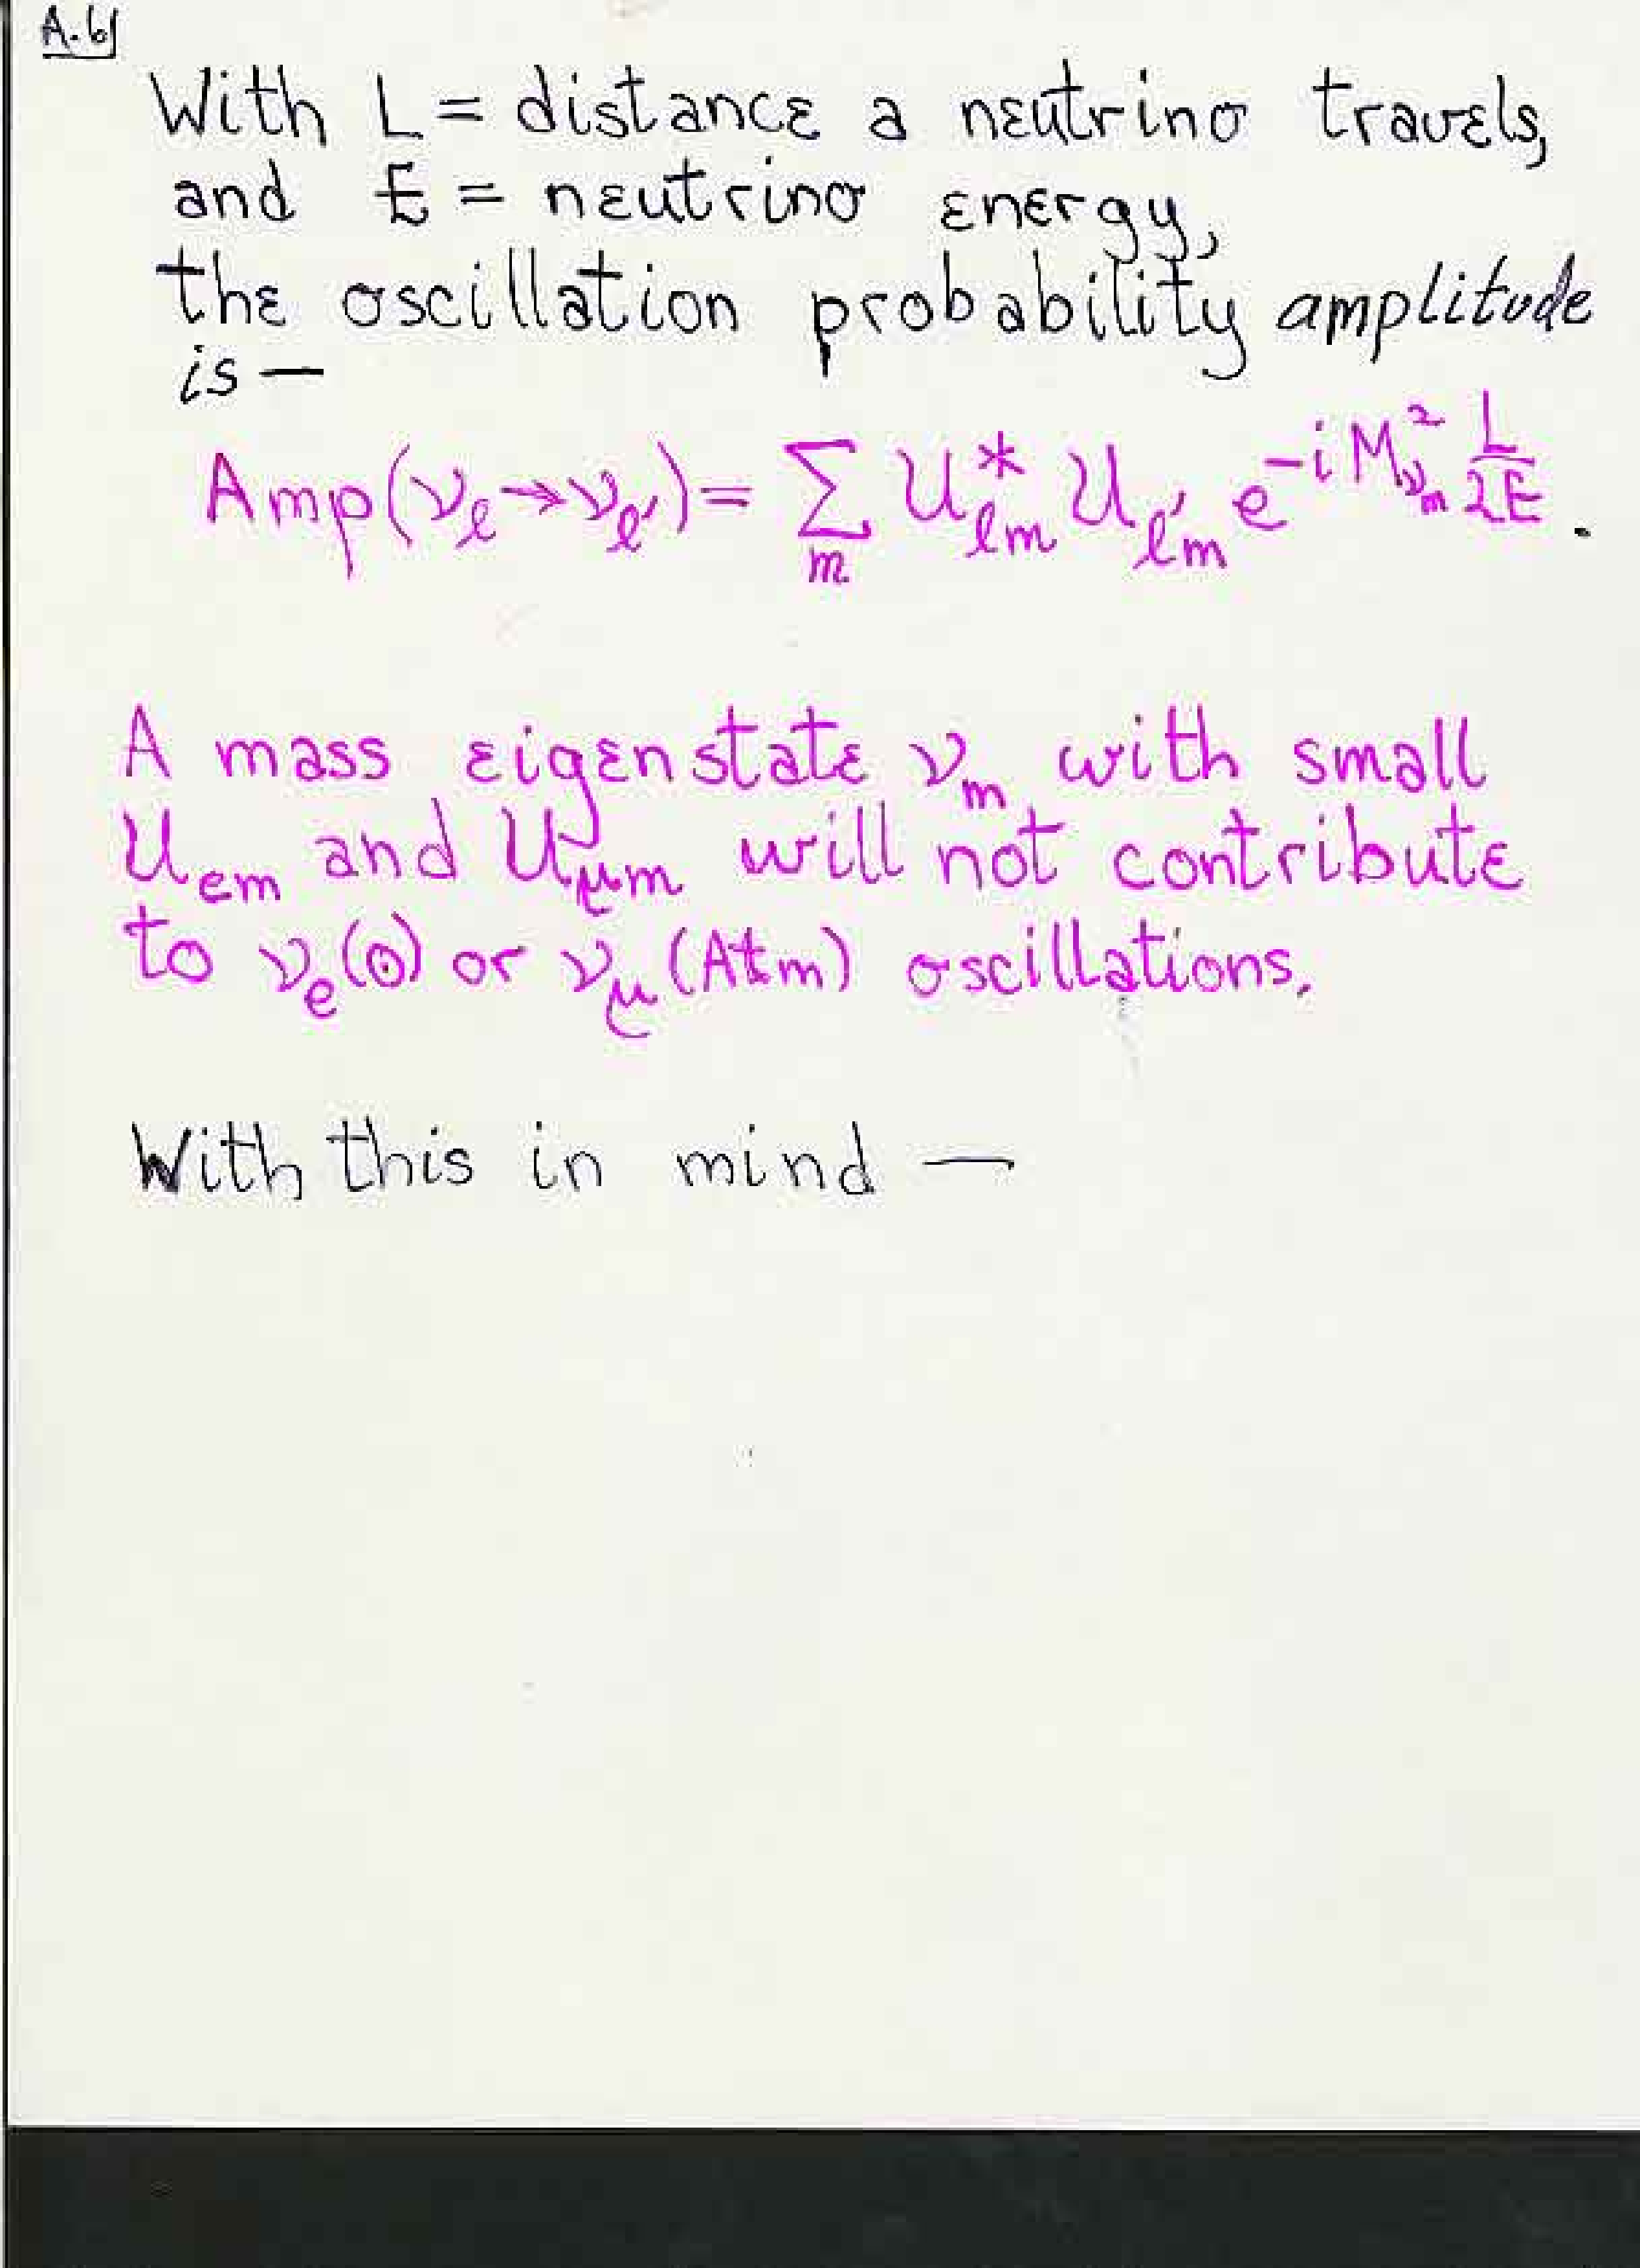 A.6
With L = distance a neutrino travels,
and E = neutrino energy,
the oscillation probability amplitude
is —
Amp(ν_ℓ→ν_ℓ') = ∑_m U*_ℓm U_ℓ'm e^{-i M²_{ν_m} L/2E} .
A mass eigenstate ν_m with small
U_em and U_μm will not contribute
to ν_e(⊙) or ν_μ(Atm) oscillations.
With this in mind —